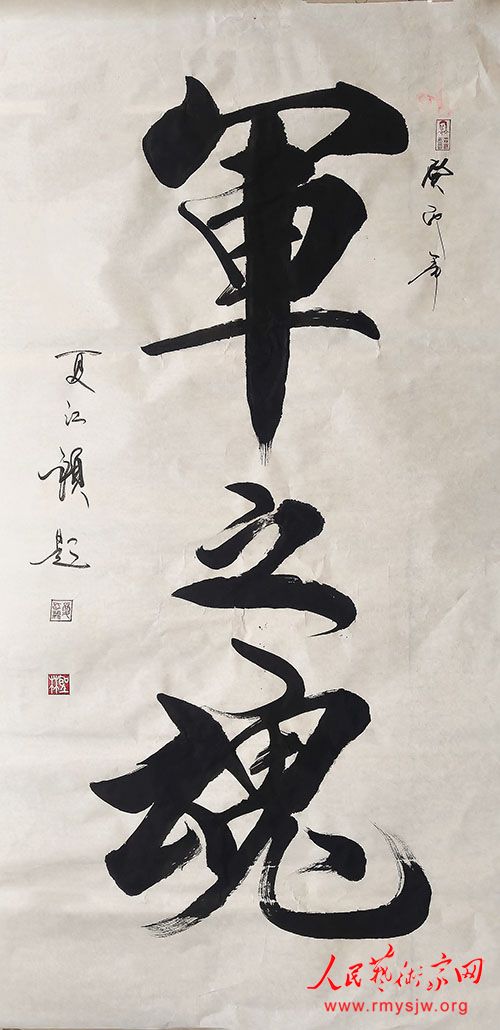 癸卯年
軍之魂
夏江韻題
人民藝術家网
www.rmysjw.org